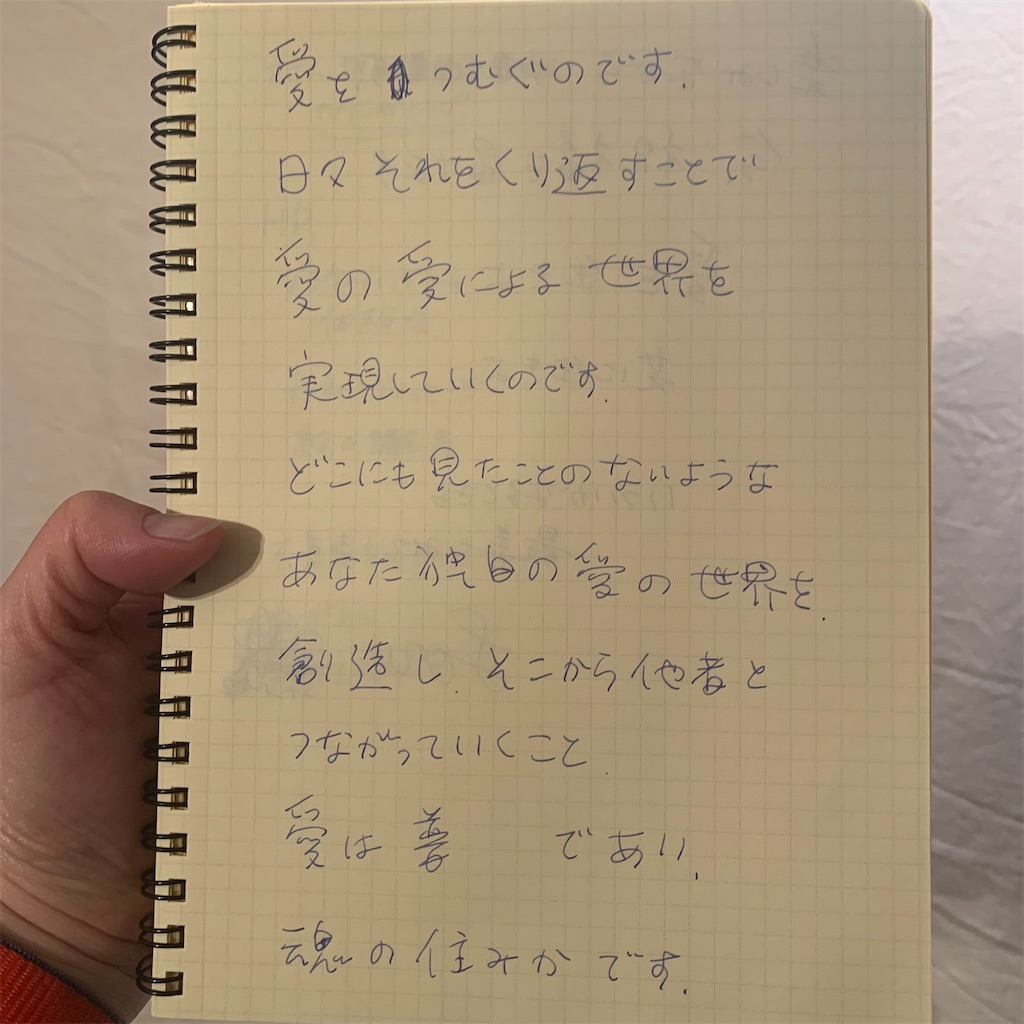 愛をつむぐのです.
日々それをくり返すことで
愛の愛による世界を
実現していくのです.
どこにも見たことのないような
あなた独自の愛の世界を.
創造し.そこから他者と
つながっていくこと.
愛は善 であり.
魂の住みかです.